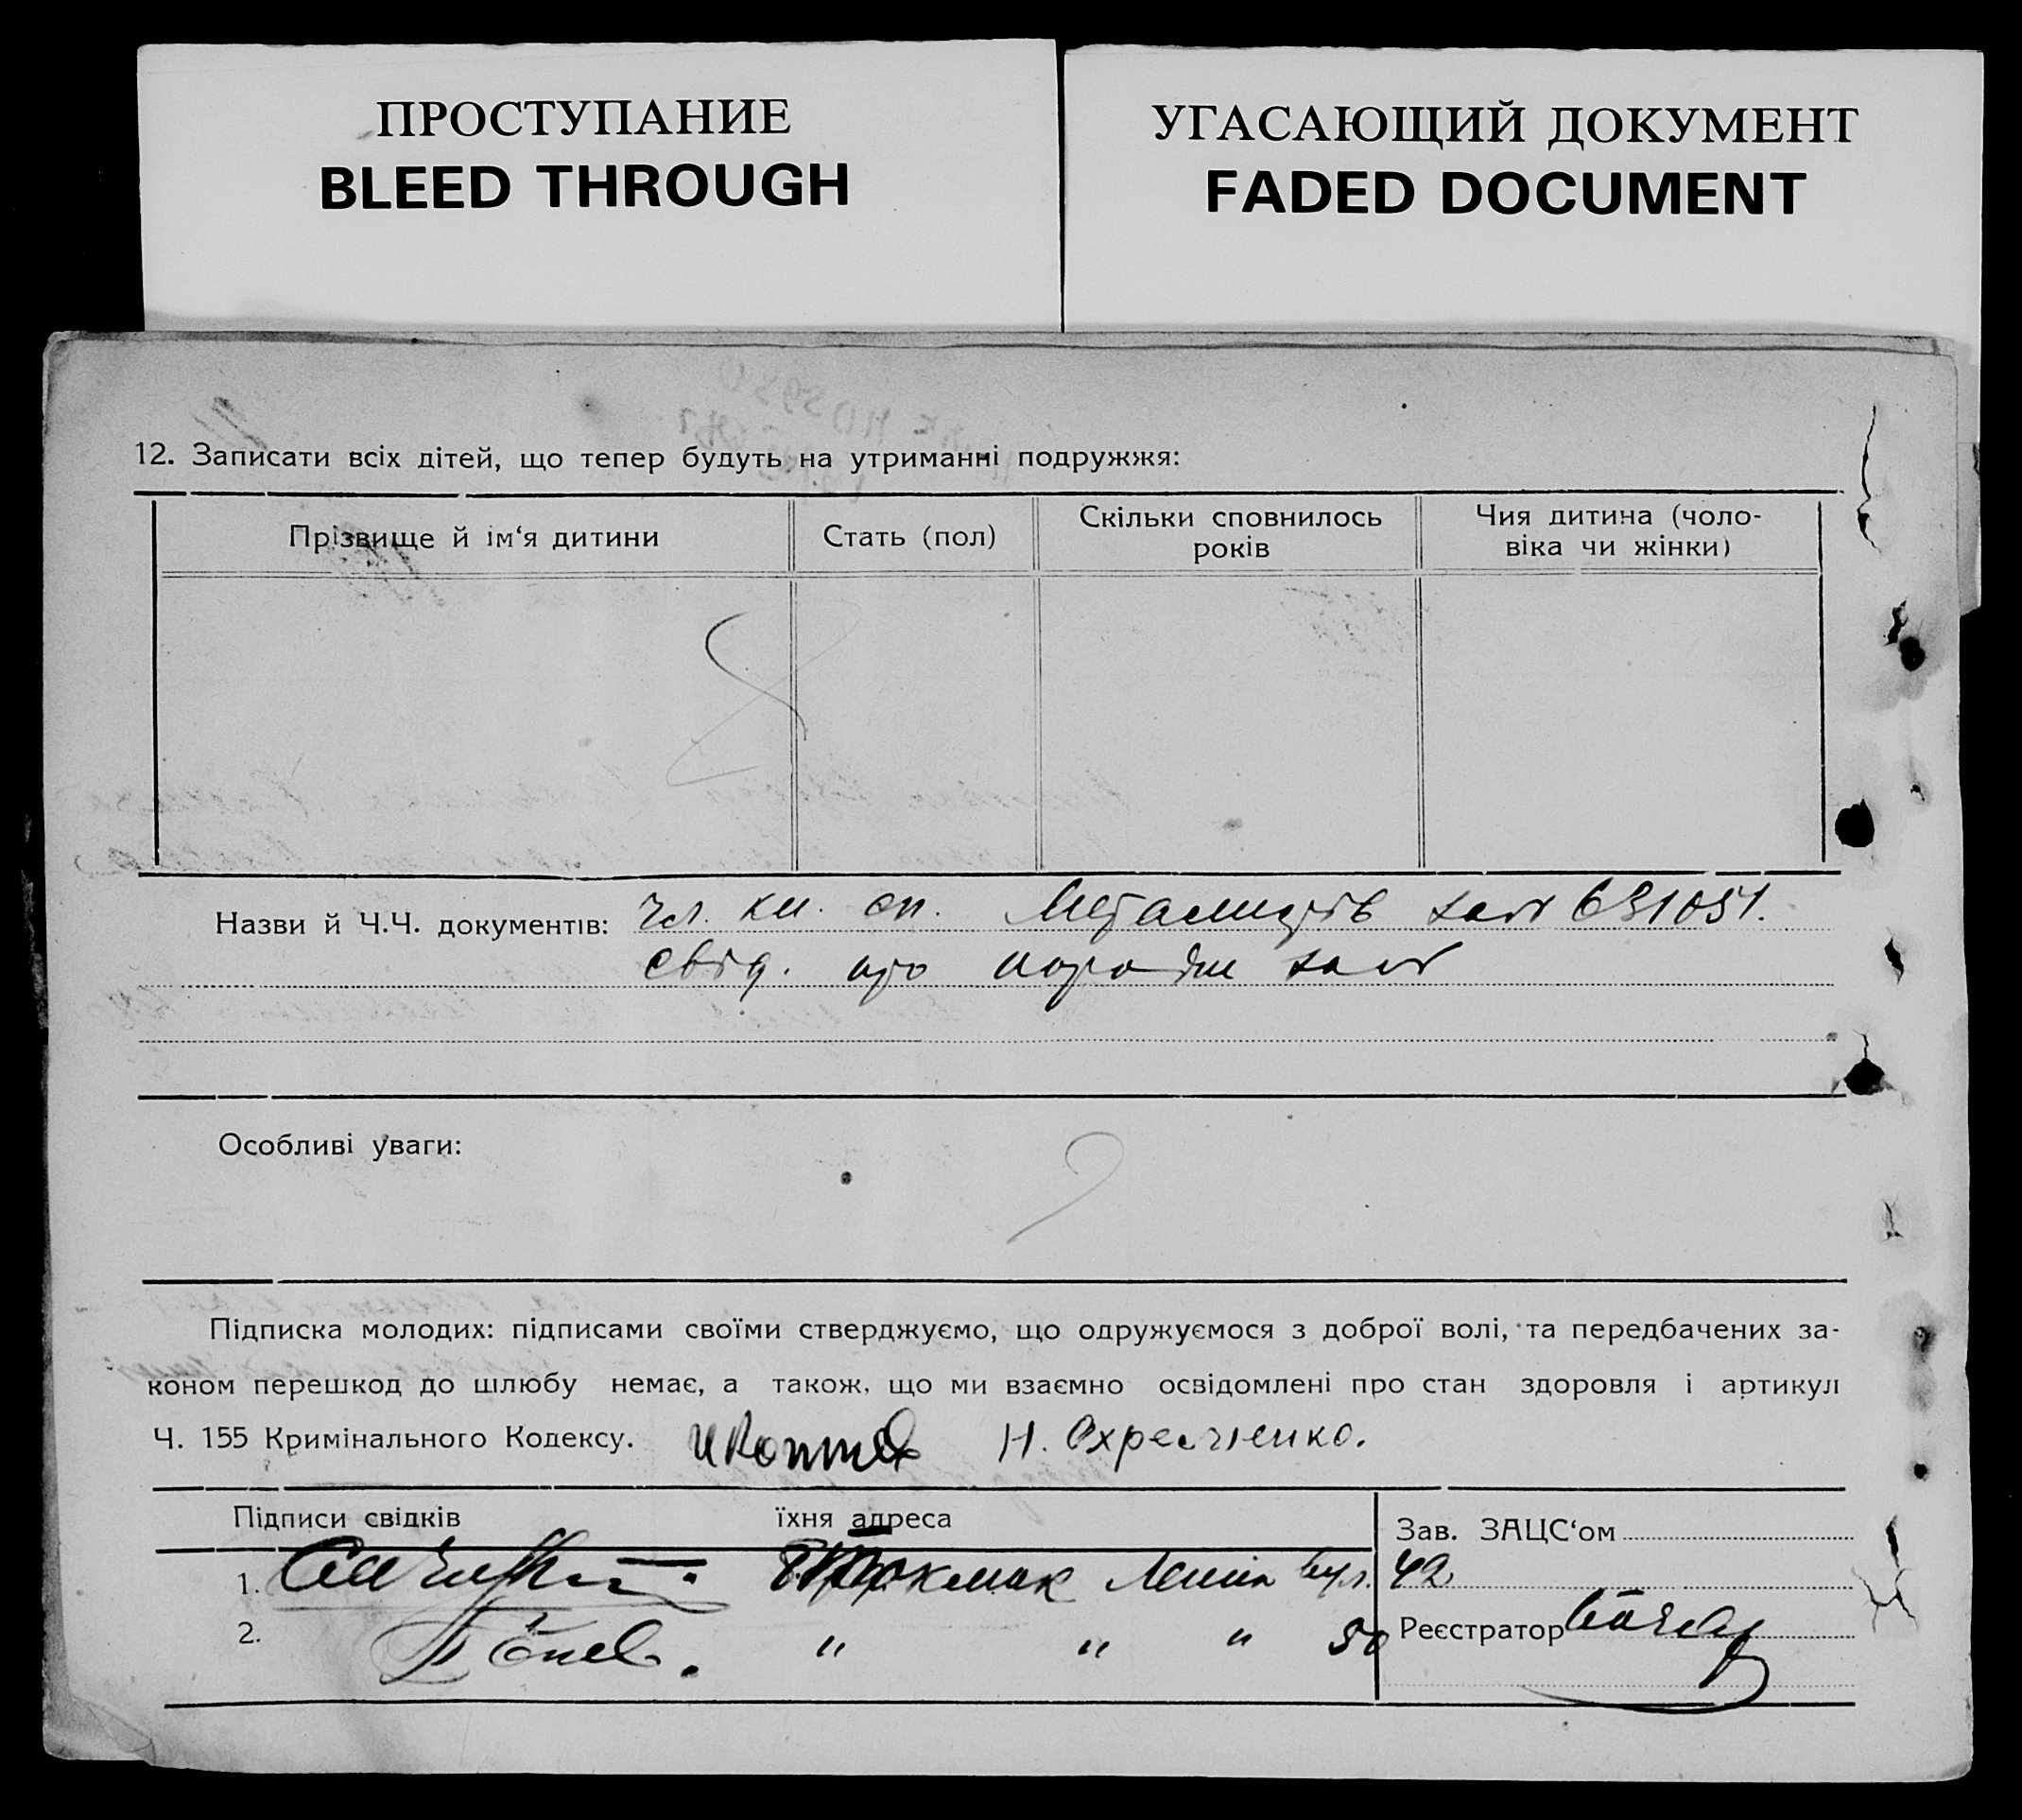 ПРОСТУПАНИЕ
BLEED THROUGH
УГАСАЮЩИЙ ДОКУМЕНТ
FADED DOCUMENT
12. Записати всіх дітей, що тепер будуть на утриманні подружжя:
Прізвище й ім‘я дитини
Стать (пол)
Скільки сповнилось
років
Чия дитина (чоло-
віка чи жінки)
Назви й Ч.Ч. документів: чл. кн. сп. Металистів
свід. про
Особливі уваги:
Підписка молодих: підписами своїми стверджуємо, що одружуємося з доброї волі, та передбачених за-
коном перешкод до шлюбу немає, а також, що ми взаємно освідомлені про стан здоровля і артикул
Ч. 155 Кримінального Кодексу. Н. Охремченко.
Підписи свідків
їхня адреса
Зав. ЗАЦС‘ом
1. Токмак Леніна вул. 42
2. " " " 50
Реєстратор